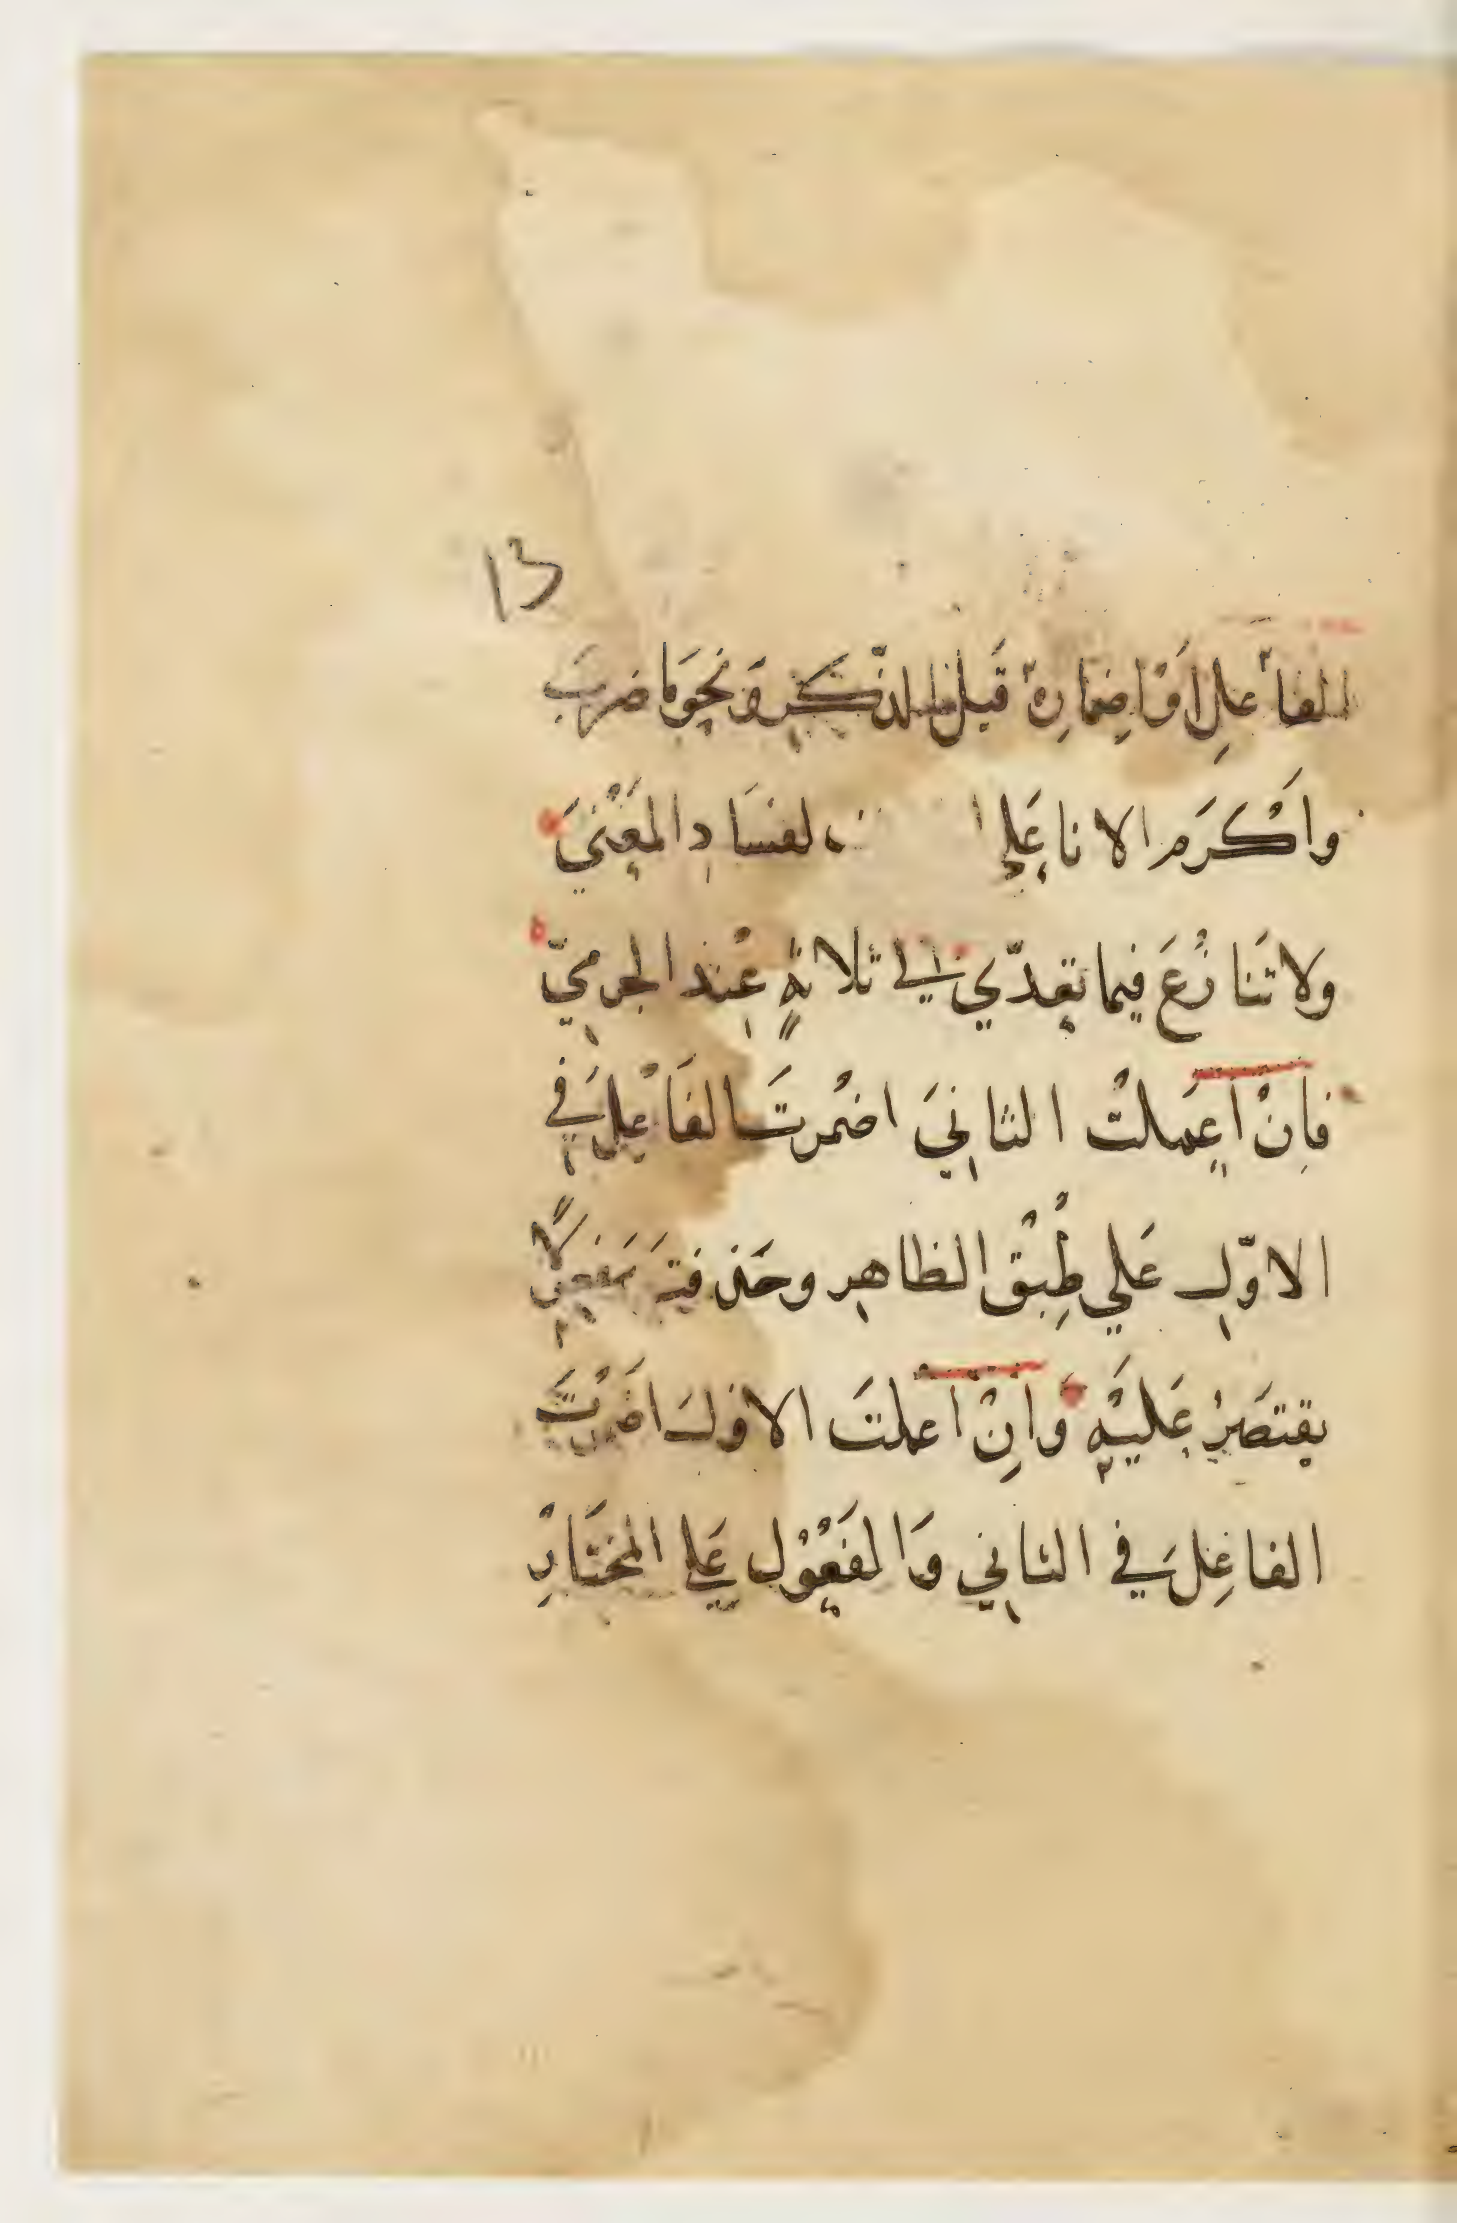 13
الفاعلِ اَوْ اضمارِهٖ قَبل الذّكر وَنحوَ ما ضربَ
واَكْرَم الا انا عَلي لفسَاد المَعْنيَ
ولا تَنازُعَ فيما تعدّي الي ثلاثةٍ عِنْد الجرميّ
فاِنْ اَعمَلتْ الثانيَ اضْمرتَ الفَاعْلَ في
الاوّلِ عَلي طِبْق الظاهرِ وحَذفتَ مَفعولًا
يقتصَرُ عَليْهِ وانِْ اَعملتَ الاوَّلَ اضَمرْتَ
الفاعِلَ في الثاني وَالمفَعْوُل عَلي المختَارِ